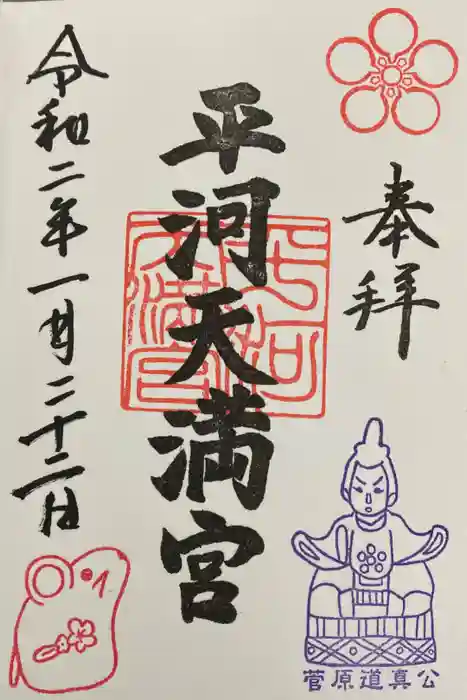 奉拝
平河天満宮
平河天満宮
令和二年一月二十二日
菅原道真公